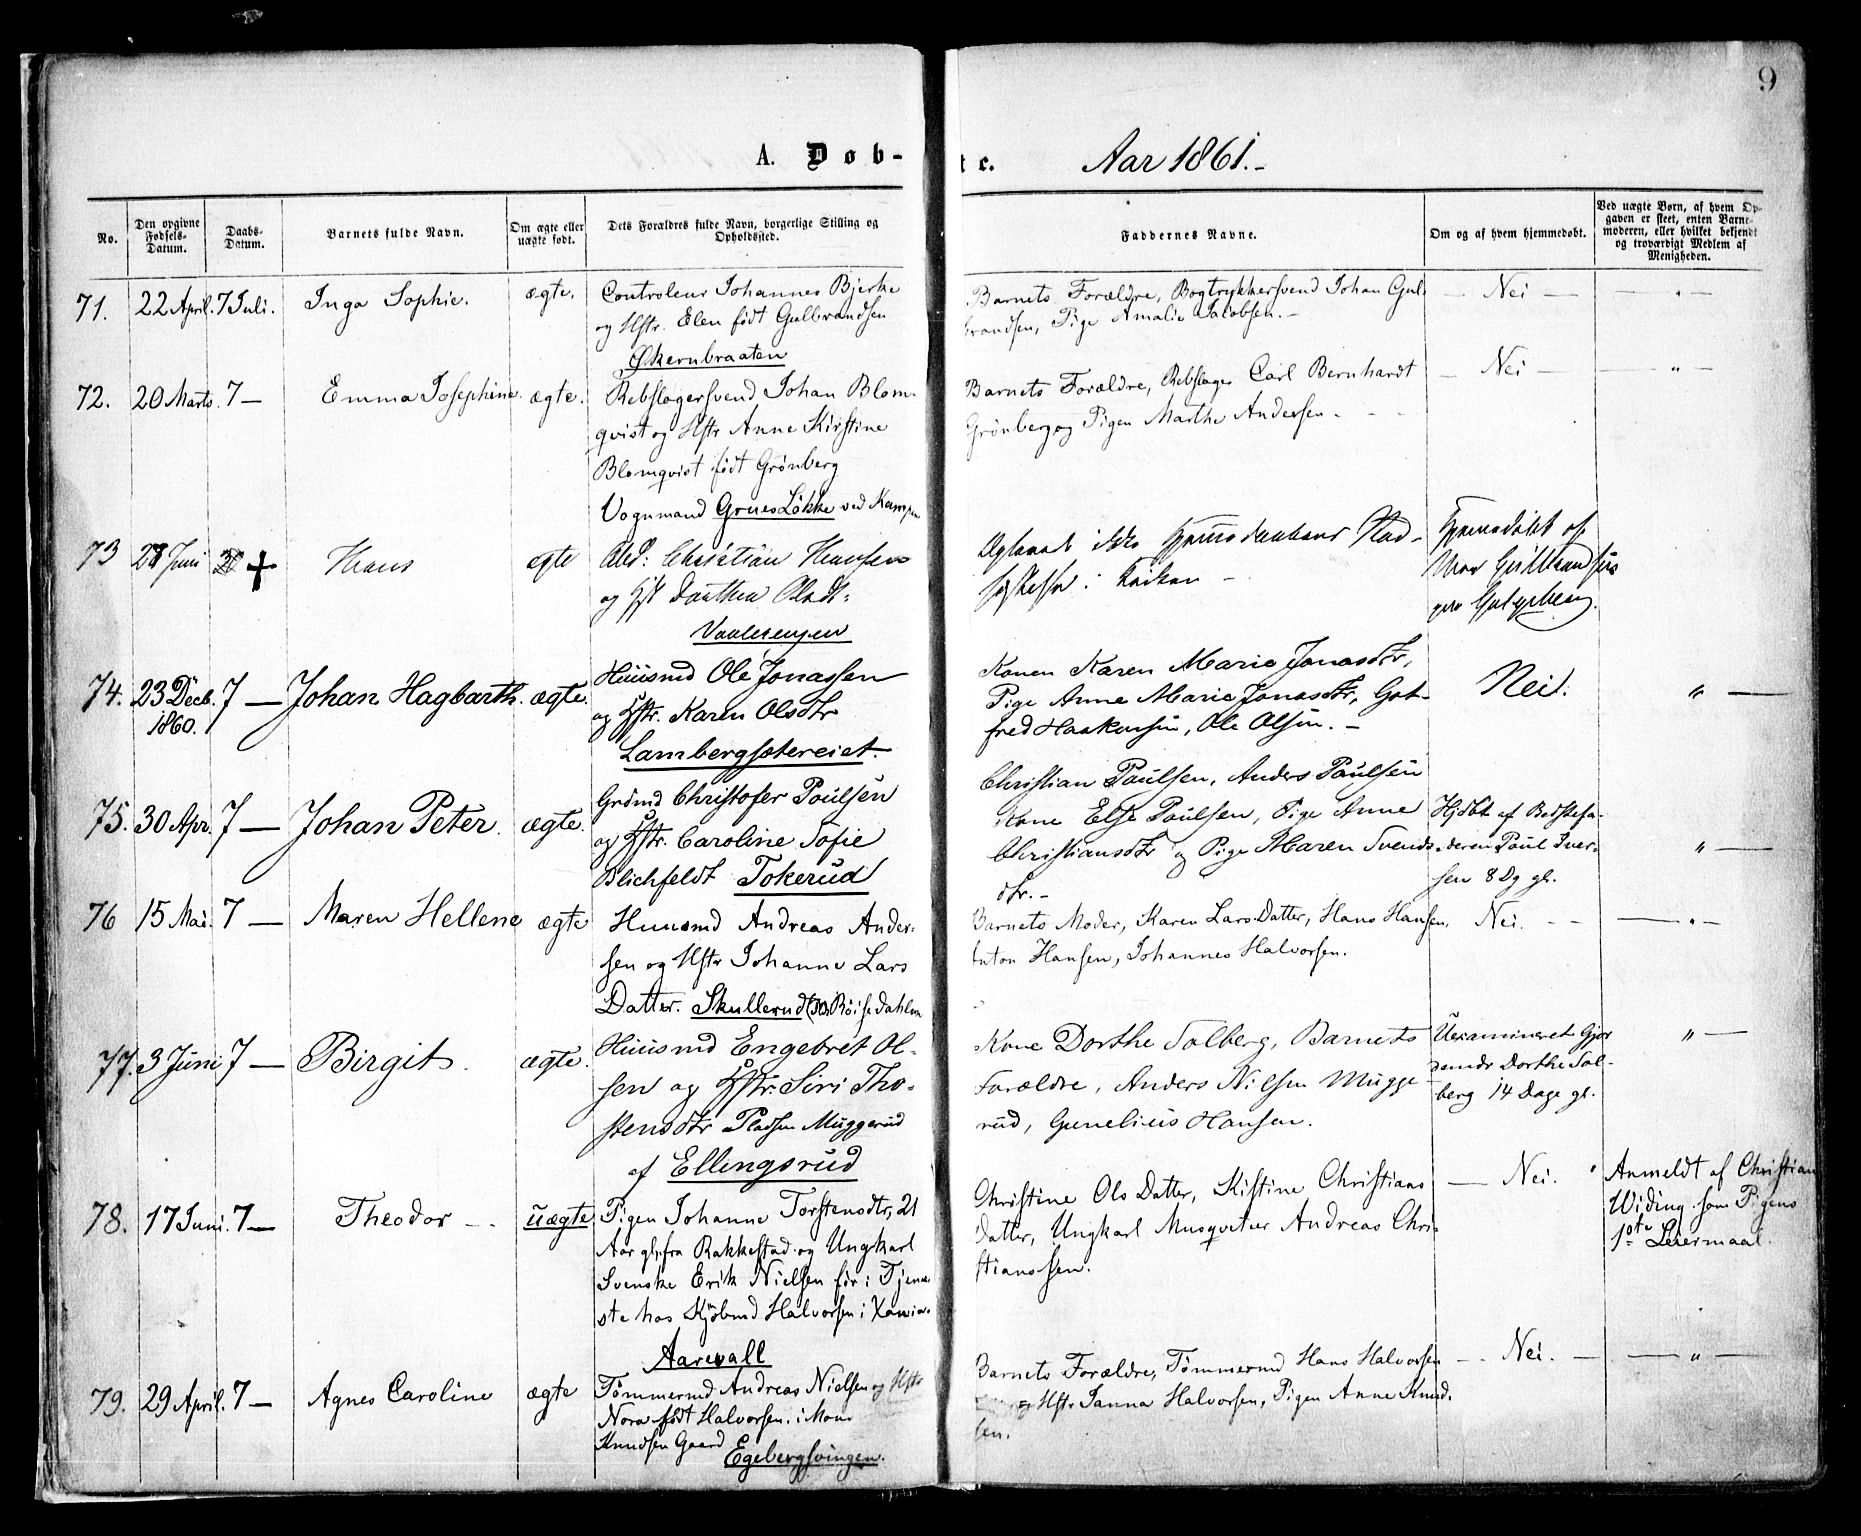 9
A. Døb-
te.
Aar 1861.-
No.
Den opgivne Fødsels-Datum.
Daabs-Datum.
Barnets fulde Navn.
Om ægte eller uægte født.
Dets Forældres fulde Navn, borgerlige Stilling og Opholdssted.
Faddernes Navne.
Om og af hvem hjemmedøbt.
Ved uægte Børn, af hvem Op-
gaven er skeet, enten Barne-
moderen, eller hvilket bekjendt
og troværdigt Medlem af
Menigheden.
71. 22 April. 7 Juli. Inga Sophie. ægte. Controleur Johannes Bjerke
og Hstr. Elen født Gulbrandsen
Økernbraaten
Barnets Forældre, Bogtrykkersvend Johan Gul-
brandsen, Pige Amalie Jacobsen. -
— Nei — — " —
72. 20 Marts. 7 — Emma Josephine. ægte. Rebslagersvend Johan Blom-
qvist og Hstr Anne Kirstine
Blomqvist født Grønberg
Grues Løkke ved Kampen
Barnets Forældre, Rebslager Carl Bernhardt
Grønberg og Pigen Marthe Andersen -
— Nei — — " —
73 28 Juni Hans ægte Vognmand
Christian Hansen
og Dorthea Olsdt.
Vaalerengen
Hjemmedøbt af
74. 23 Decb. 1860. 7 — Johan Hagbarth. ægte. Huusmd Ole Jonassen
og Hstr. Karen Olsdtr
Lambergsætereiet.
Konen Karen Marie Jonasdtr,
Pige Anne Marie Jonasdtr, Got-
fred Haakonsen, Ole Olsen. -
Nei. " —
75. 30 Apr. 7 — Johan Peter. ægte. Grdmd Christofer Poulsen
og Hstr. Caroline Sofie
Blichfeldt Tokerud
Christian Paulsen, Anders Paulsen
Kone Else Paulsen, Pige Anne
Christiansdtr og Pige Maren Svends-
dtr. -
Hjdbt af Bedstefa-
deren Paul Iver-
sen 8 Dg gl.
" —
76 15 Mai. 7 — Maren Hellene ægte Huusmd Andreas Ander-
sen og Hstr Johanne Lars
Datter. Skullerud
Barnets Moder, Karen Lars Datter, Hans Hansen,
Anton Hansen, Johannes Halvorsen.
Nei. — " —
77. 3 Juni 7 — Birgit. ægte. Huusmd Engebret Ol-
sen og Hstr. Siri Tho-
stensdtr Pladsen Muggerud
af Ellingsrud
Kone Dorthe Solberg, Barnets
Forældre, Anders Nilsen Mugge
rud, Gunelius Hansen.
Uexamineret Gjor
demdr Dorthe Sol-
berg 14 Dage gl.
" —
78. 17 Juni. 7 — Theodor - uægte. Pigen Johanne Torstensdtr, 21
Aar gl. fra Rakkestad og Ungkarl
Svenske Erik Nielsen før i Tjene
ste hos Kjøbmd Halvorsen i Xania.
Aarvall
Christine Ols Datter, Kistine Christians
Datter, Ungkarl Musqveteer Andreas Chri-
stianssen.
— Nei.
Anmeldt af Christian
Widing som Pigens
1ste Leiermaal.
79. 29 April. 7 — Agnes Caroline ægte Tømmermd Andreas Nielsen og Hstr
Nora født Halvorsen. i Mons
Knudsen Gaard Egebergsvingen.
Barnets Forældre, Tømmermd Hans Halvorsen
og Hstr Janna Halvorsen, Pigen Anne Knud-
sen.
- Nei. — — " —